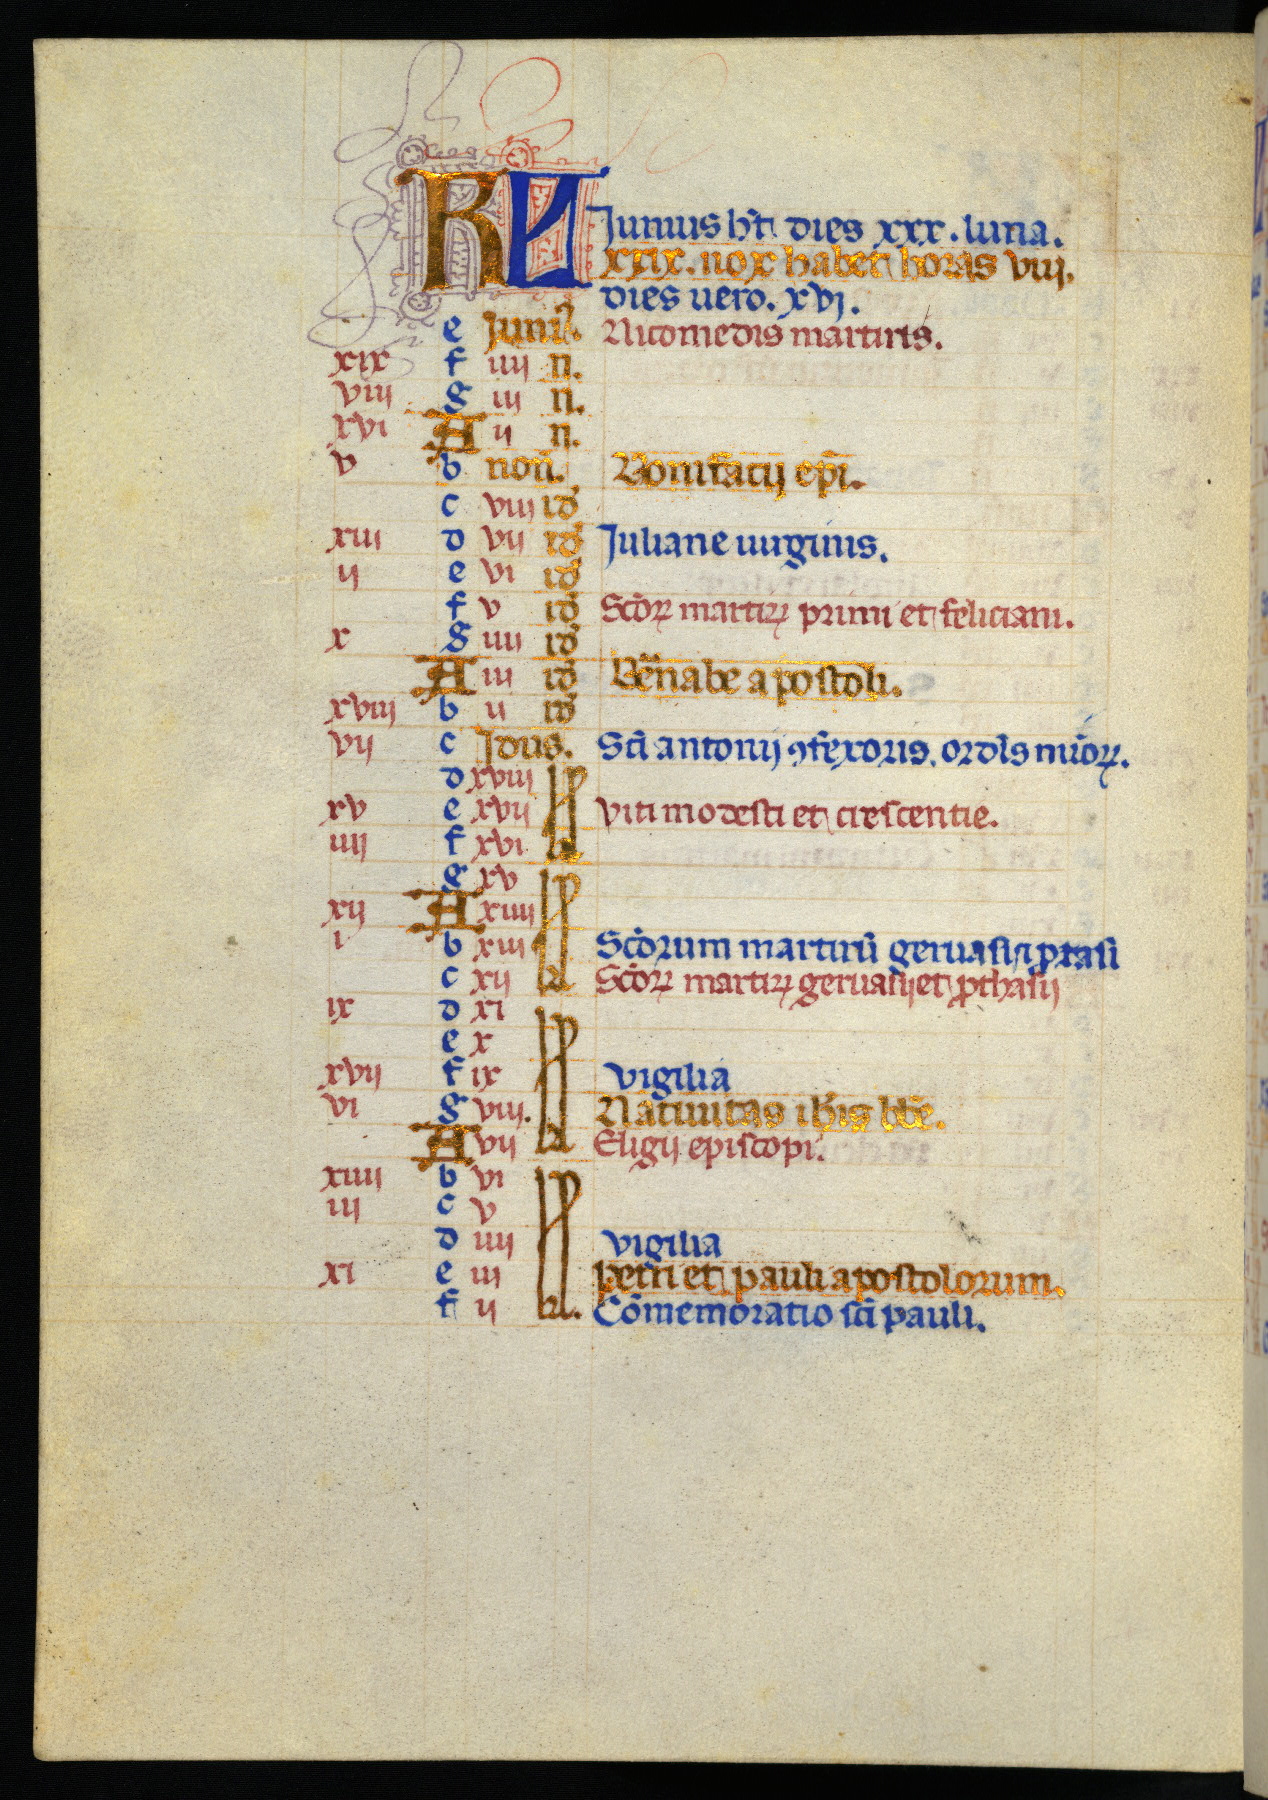 KL Junius h̅t dies xxx. luna.
xxix. nox habet horas viij.
dies uero. xvj.
e Junii. Nicomedis martiris.
xix f iiij n.
viij g iij n.
xvi A ij n.
v b non. Bonifacij ep̅i.
c viij id
xiii d vij id Juliane uirginis.
ij e vi id
f v id Sc̅oꝝ martiꝝ primi et feliciani.
x g iiij id
A iii id Be̅nabe apostoli.
xviij b ii id
vij c Jdus. Sc̅i antonij ꝯfexoris. ordīs mi̅oꝝ.
d xviij kl
xv e xvij Viti modesti et crescentie.
iiij f xvi
g xv kl
xij A xiiij
i b xiii Sc̅orum martiru̅ geruasi ⁊ ꝓtasi
c xij Sc̅oꝝ martiꝝ geruasij et ꝓthasij
ix d xi kl
e x
xvij f ix vigilia
vi g viij. Natiuitas ioh̅is bt̅e.
A vij Eligij episcopi.
xiiij b vi kl
iij c v
d iiij vigilia
xi e iij petri et pauli apostolorum.
f ij Co̅memoratio sc̅i pauli.